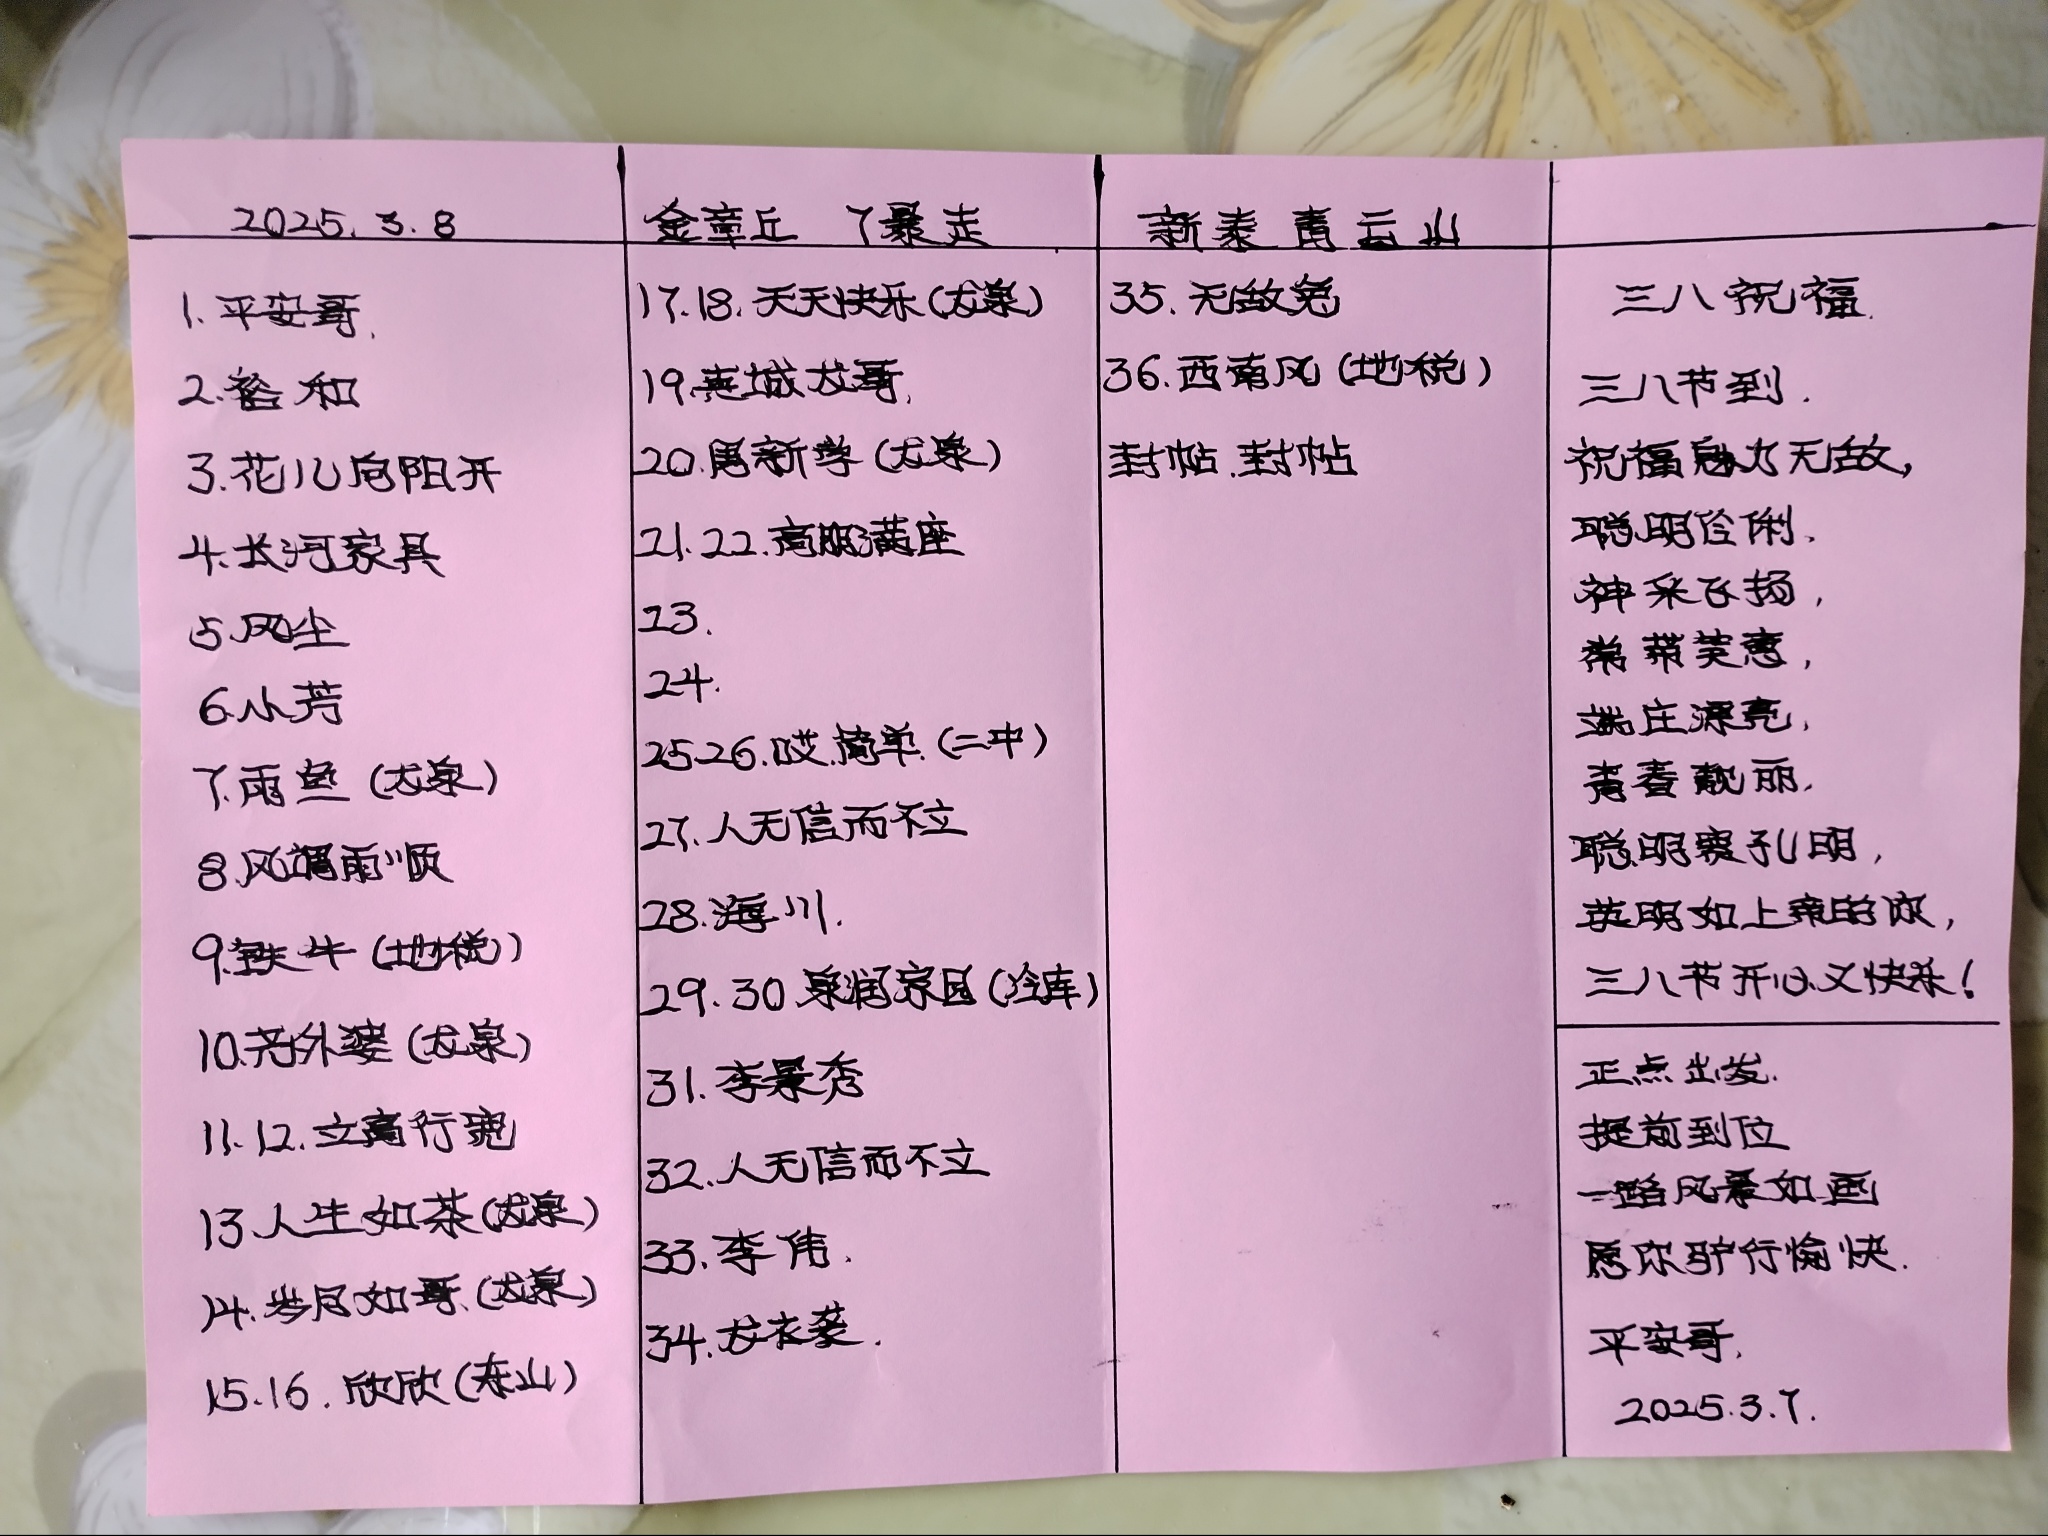 2025.3.8
1.平安哥.
2.裕和
3.花儿向阳开
4.长河家具
5.风尘
6.小芳
7.雨鱼(龙泉)
8.风调雨顺
9.铁牛(地税)
10.老外婆(龙泉)
11.12.立高行宽
13人生如茶(龙泉)
14.岁月如哥.(龙泉)
15.16.欣欣(东山)
金章丘 丫暴走
17.18.天天快乐(龙泉)
19.惠城龙哥.
20.周新学(龙泉)
21.22.高朋满座
23.
24.
25 26.哎.简单.(二中)
27.人无信而不立
28.海川.
29.30泉润家园(冷库)
31.李景秀
32.人无信而不立
33.李伟.
34.龙衣婆.
新泰青云山
35.无敌兔
36.西南风(地税)
封帖.封帖
三八祝福.
三八节到.
祝福魅力无敌,
聪明俊俐,
神采飞扬,
常带笑意,
端庄漂亮,
青春靓丽.
聪明赛孔明,
英明如上帝的你,
三八节开心又快乐!
正点出发.
提前到位
一路风景如画
愿你驴行愉快.
平安哥.
2025.3.7.